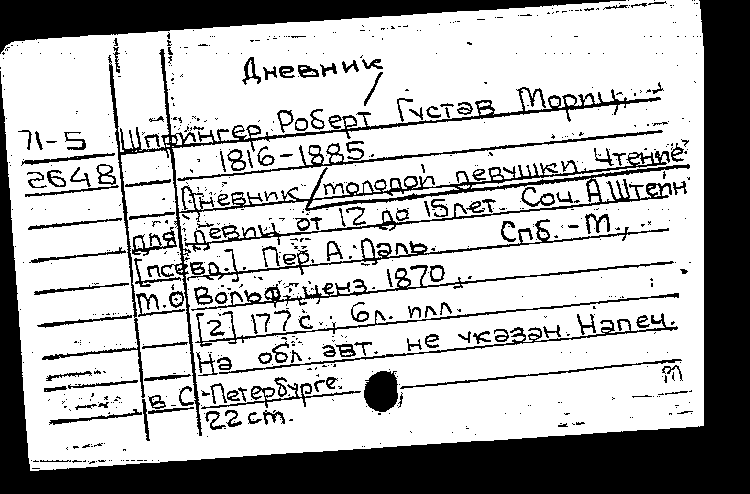 Дневник
71-5 Шпрингер, Роберт Густав Мориц,
2648 1816-1885.
Дневник молодой девушки. Чтение
для девиц от 12 до 15 лет. Соч. А. Штейн
[псевд.]. Пер. А. Даль. Спб. - М.,
М.О. Вольф, ценз. 1870.
[2], 177 с.; 6 л. илл.
На обл. авт. не указан. Напеч.
в С.-Петербурге.
22 cm.